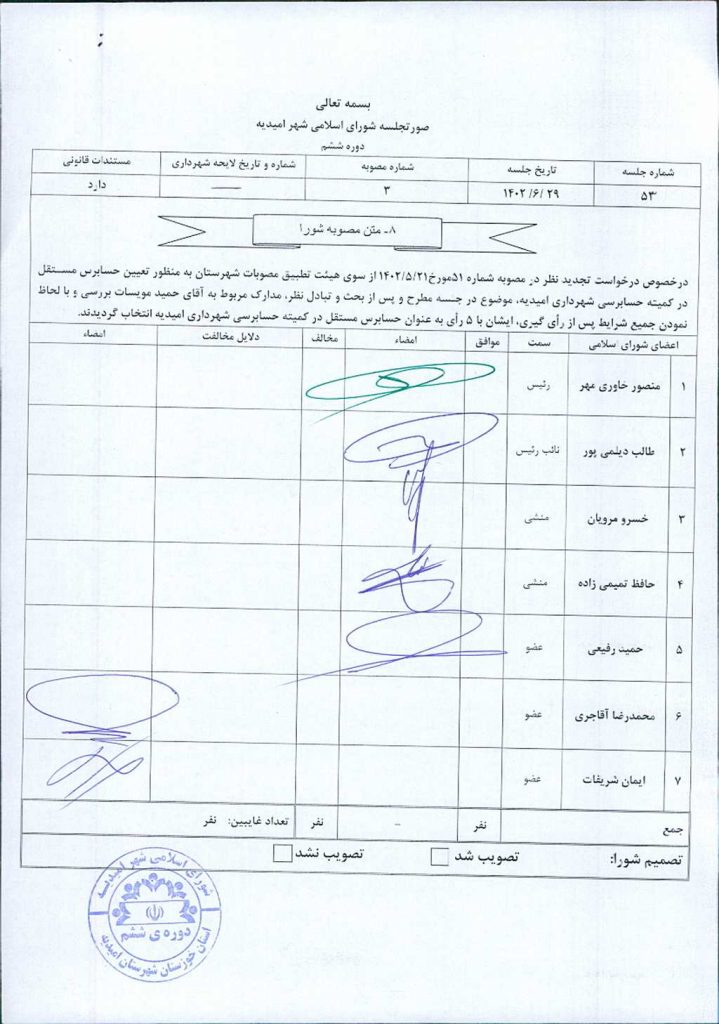 بسمه تعالی
صورتجلسه شورای اسلامی شهر امیدیه
دوره ششم
شماره جلسه تاریخ جلسه شماره مصوبه شماره و تاریخ لایحه شهرداری مستندات قانونی
۵۳ ۱۴۰۲/۶/۲۹ ۳ — دارد
۸- متن مصوبه شورا
درخصوص درخواست تجدید نظر در مصوبه شماره ۵۱مورخ۱۴۰۲/۵/۲۱از سوی هیئت تطبیق مصوبات شهرستان به منظور تعیین حسابرس مستقل
در کمیته حسابرسی شهرداری امیدیه، موضوع در جسه مطرح و پس از بحث و تبادل نظر، مدارک مربوط به آقای حمید مویسات بررسی و با لحاظ
نمودن جمیع شرایط پس از رأی گیری، ایشان با ۵ رأی به عنوان حسابرس مستقل در کمیته حسابرسی شهرداری امیدیه انتخاب گردیدند.
اعضای شورای سلامی سمت موافق امضاء مخالف دلایل مخالفت امضاء
۱ منصور خاوری مهر رئیس
۲ طالب دیلمی پور نائب رئیس
۳ خسرو مرویان منشی
۴ حافظ تمیمی زاده منشی
۵ حمید رفیعی عضو
۶ محمدرضا آقاجری عضو
۷ ایمان شریفات عضو
جمع نفر - نفر تعداد غایبین: نفر
تصمیم شورا: تصویب شد تصویب نشد
شورای اسلامی شهر امیدیه
دوره ی ششم
استان خوزستان شهرستان امیدیه